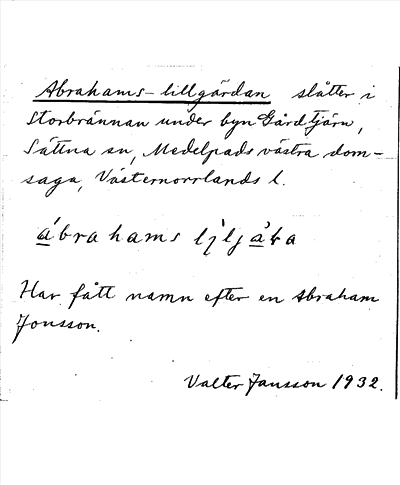 Abrahams-lillgärdan slåtter i
Storbrännan under byn Gårdtjärn,
Sättna sn, Medelpads västra dom-
saga, Västernorrlands l.
ábrahams
Har fått namn efter en Abraham
Jonsson.
Valter Jansson 1932.